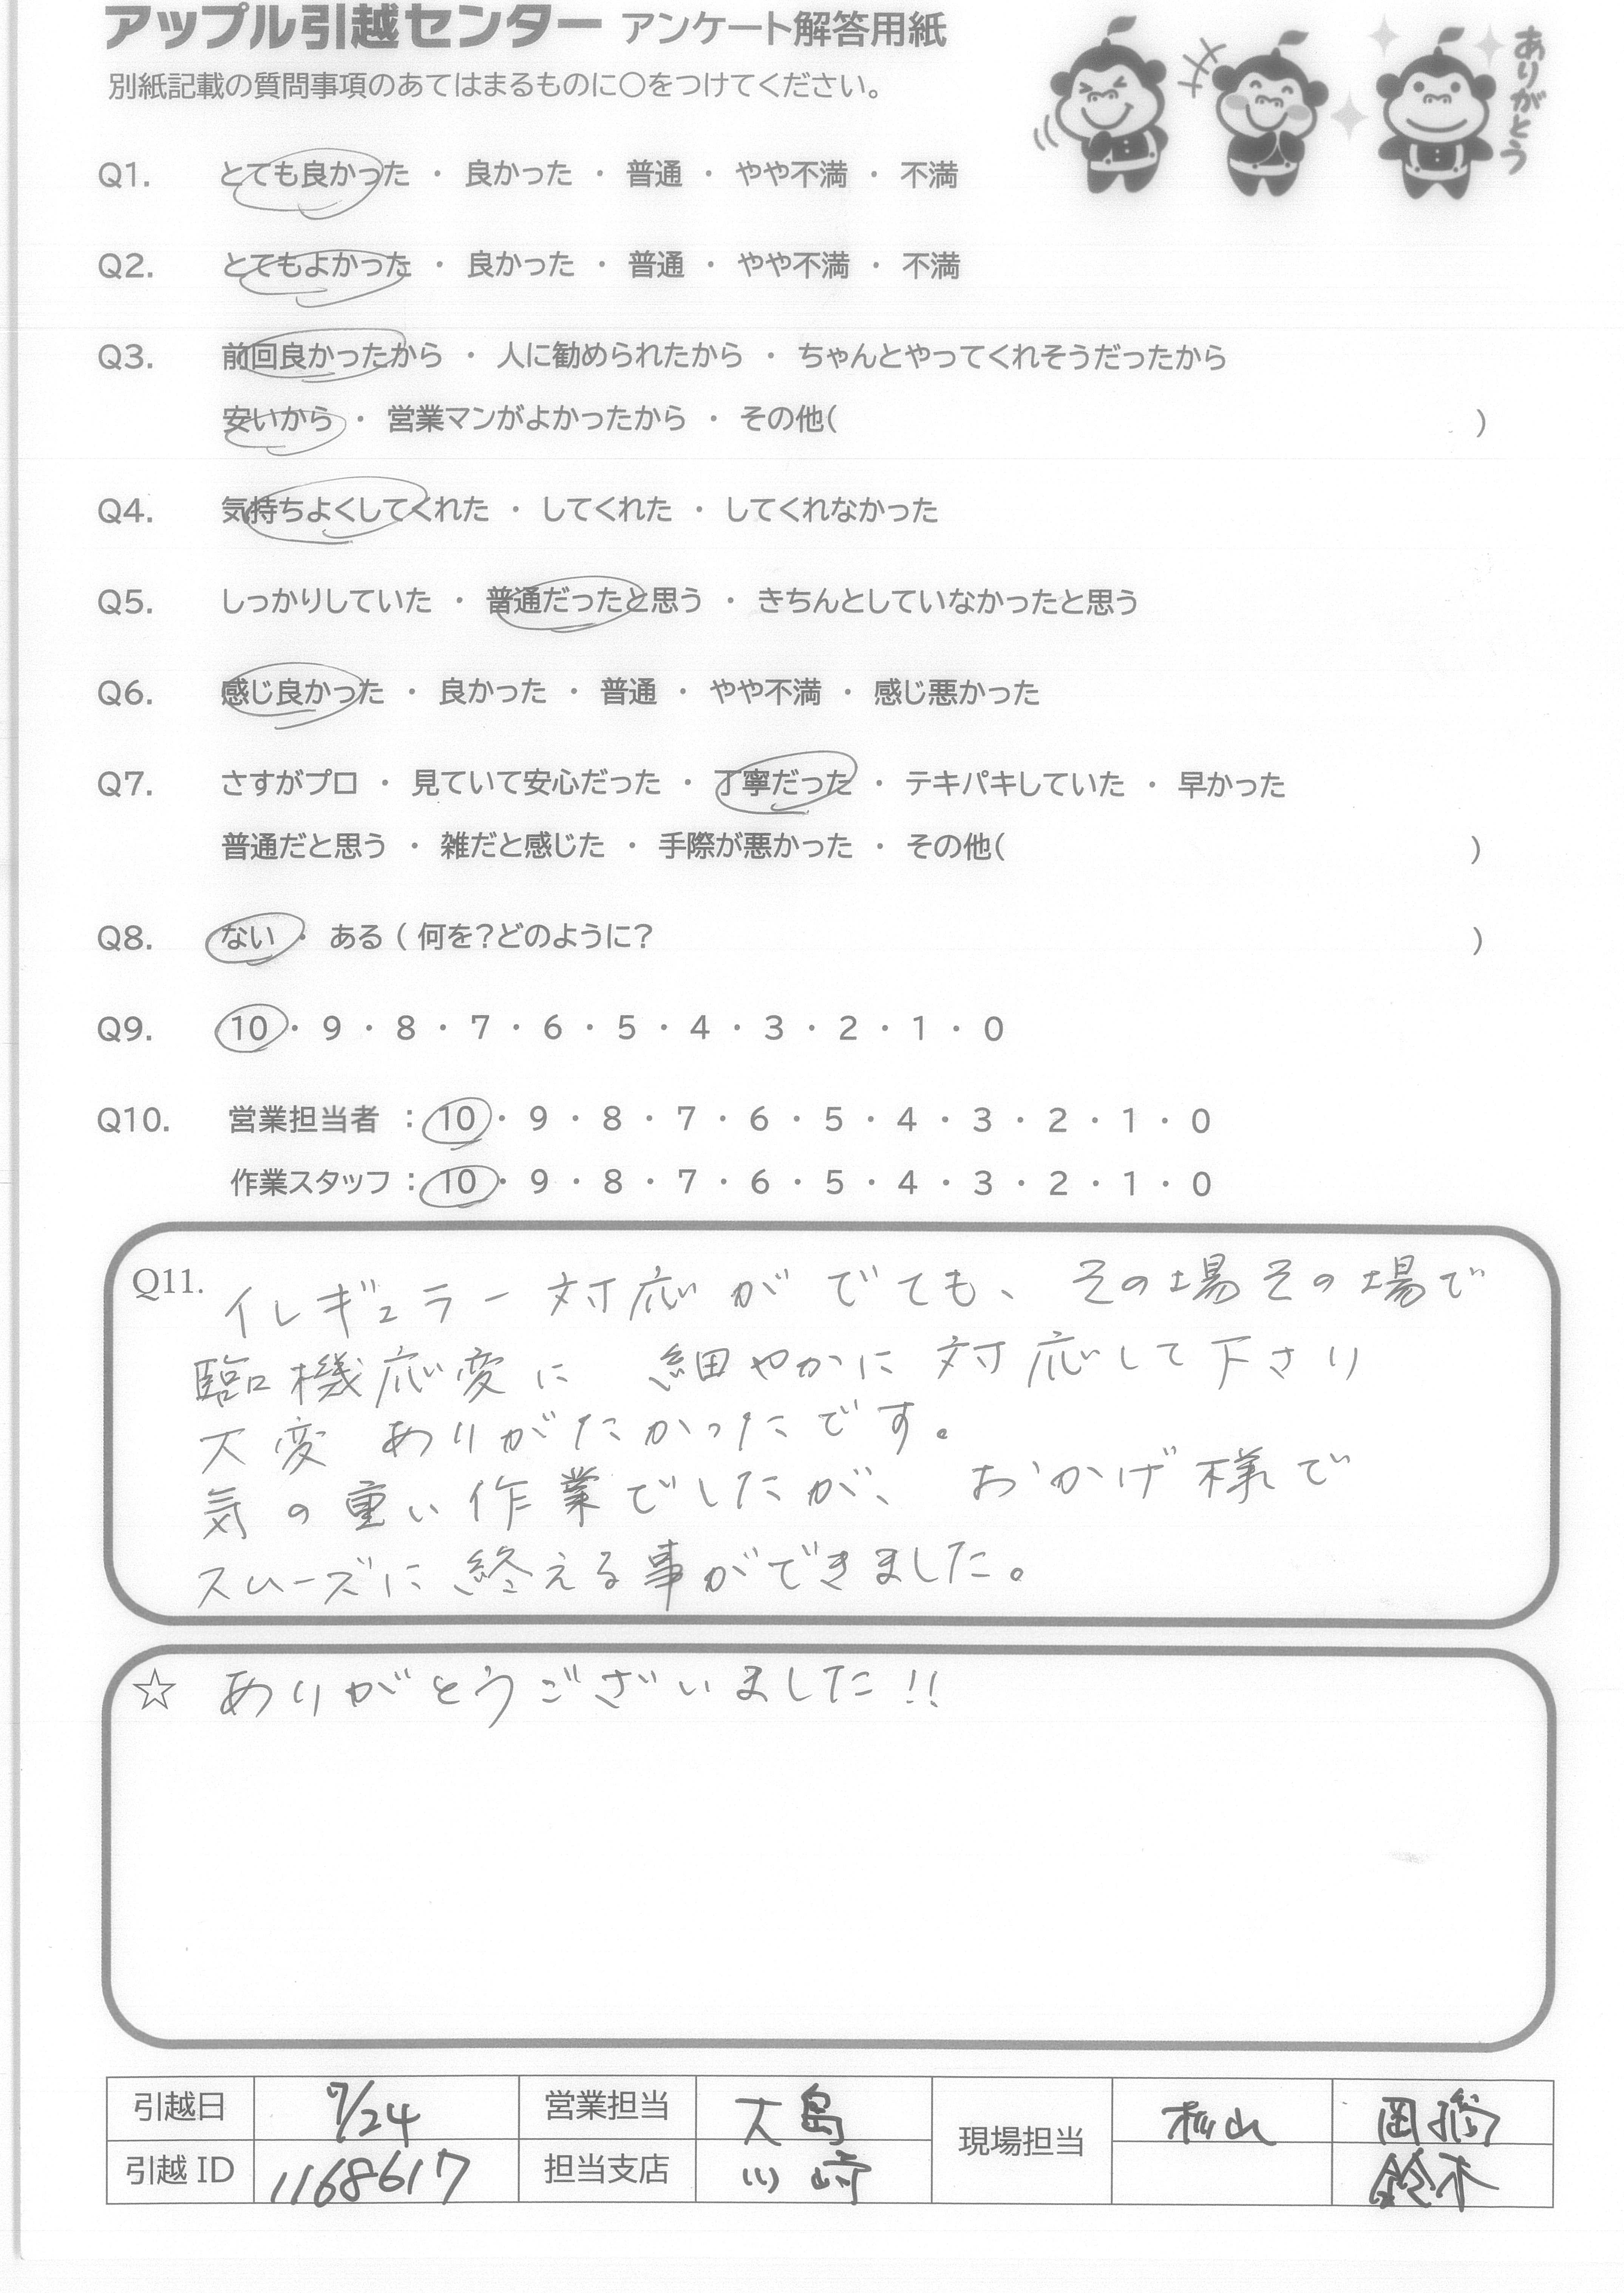 アップル引越センター アンケート解答用紙
別紙記載の質問事項のあてはまるものに〇をつけてください。
ありがとう
Q1. とても良かった ・ 良かった ・ 普通 ・ やや不満 ・ 不満
Q2. とてもよかった ・ 良かった ・ 普通 ・ やや不満 ・ 不満
Q3. 前回良かったから ・ 人に勧められたから ・ ちゃんとやってくれそうだったから
安いから ・ 営業マンがよかったから ・ その他( )
Q4. 気持ちよくしてくれた ・ してくれた ・ してくれなかった
Q5. しっかりしていた ・ 普通だったと思う ・ きちんとしていなかったと思う
Q6. 感じ良かった ・ 良かった ・ 普通 ・ やや不満 ・ 感じ悪かった
Q7. さすがプロ ・ 見ていて安心だった ・ 丁寧だった ・ テキパキしていた ・ 早かった
普通だと思う ・ 雑だと感じた ・ 手際が悪かった ・ その他( )
Q8. ない ・ ある ( 何を?どのように? )
Q9. 10 ・ 9 ・ 8 ・ 7 ・ 6 ・ 5 ・ 4 ・ 3 ・ 2 ・ 1 ・ 0
Q10. 営業担当者 : 10 ・ 9 ・ 8 ・ 7 ・ 6 ・ 5 ・ 4 ・ 3 ・ 2 ・ 1 ・ 0
作業スタッフ : 10 ・ 9 ・ 8 ・ 7 ・ 6 ・ 5 ・ 4 ・ 3 ・ 2 ・ 1 ・ 0
Q11. イレギュラー対応がでても、その場その場で
臨機応変に 細やかに対応して下さり
大変ありがたかったです。
気の重い作業でしたが、おかげ様で
スムーズに終える事ができました。
☆ ありがとうございました!!
引越日 7/24 営業担当 大島 現場担当 松山 岡崎
引越ID 1168617 担当支店 川崎 鈴木